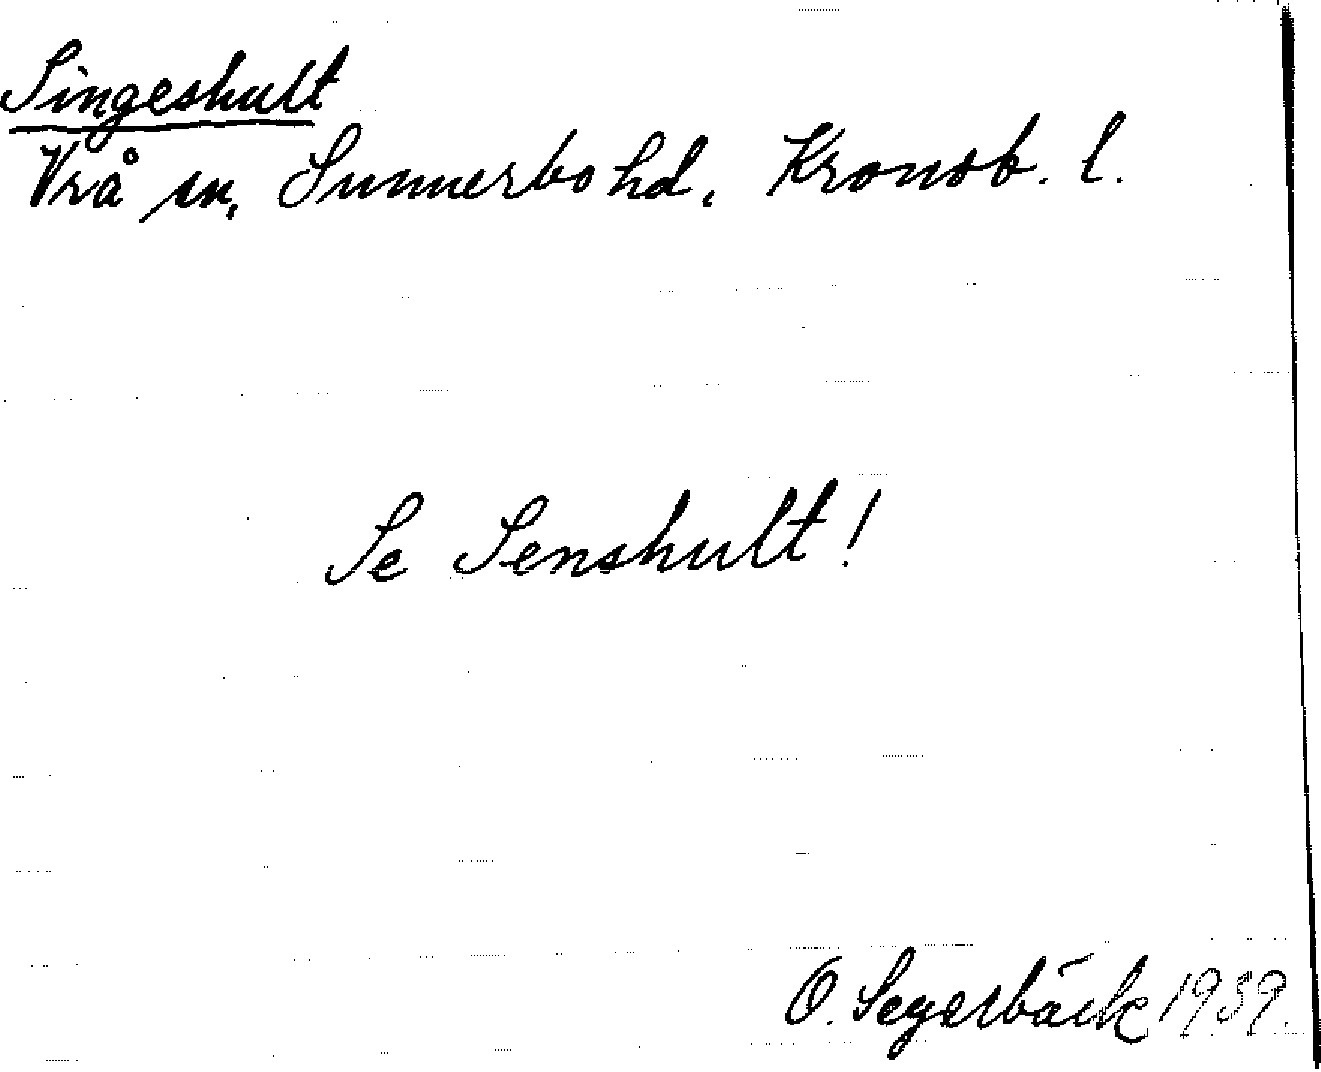 Singeshult
Vrå sn, Sunnerbo hd, Kronob. l.
Se Senshult!
O. Segerbäck 1939.